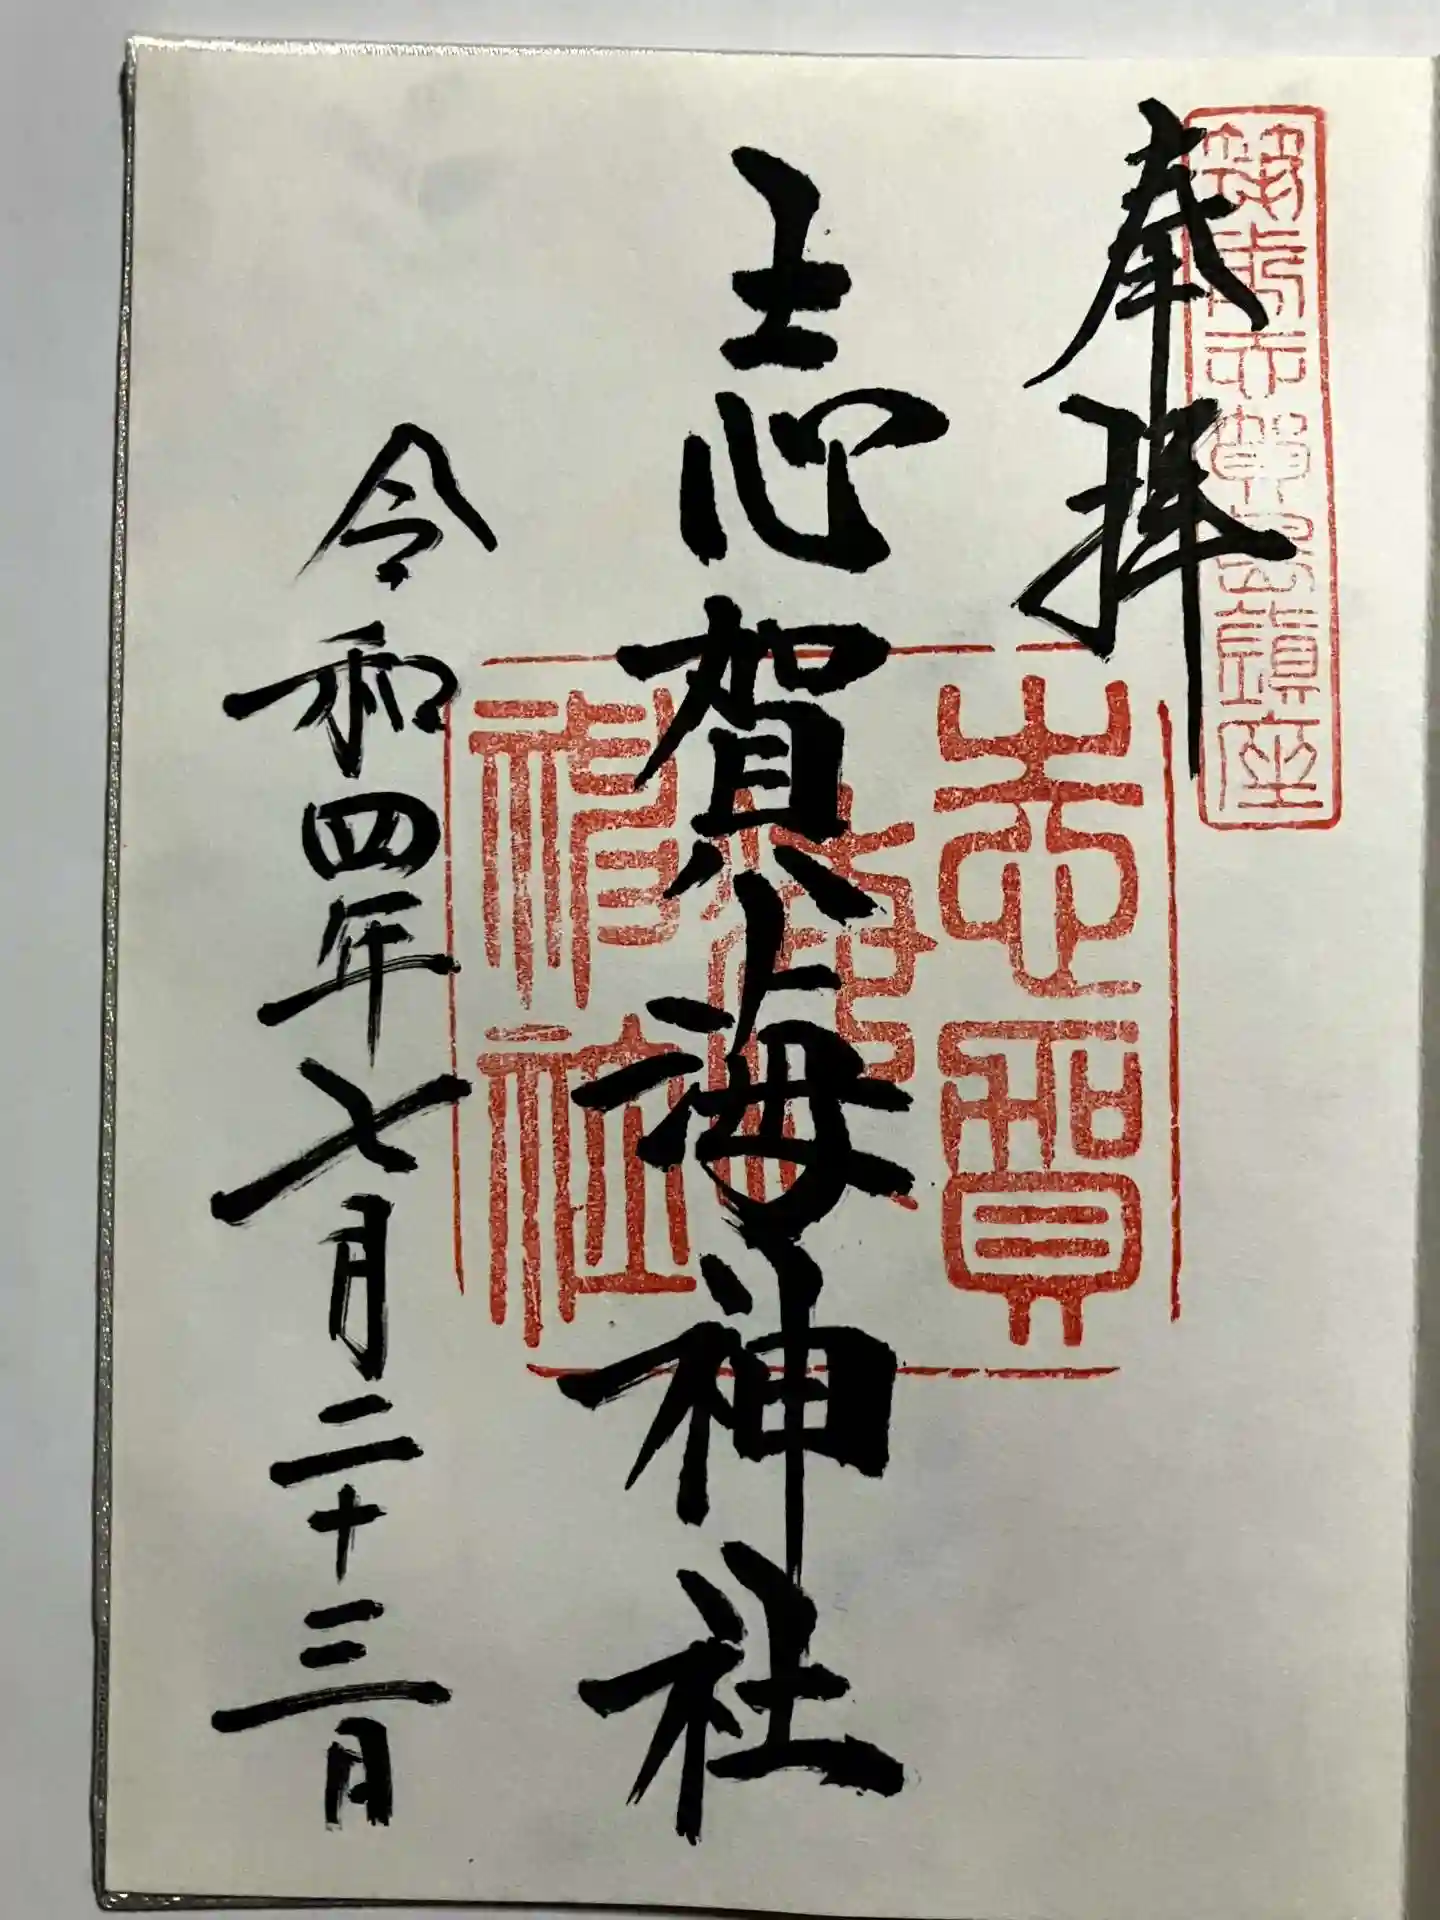 奉拝
筑前志賀島鎮座
志賀海神社
志賀
海
神社
令和四年七月二十三日